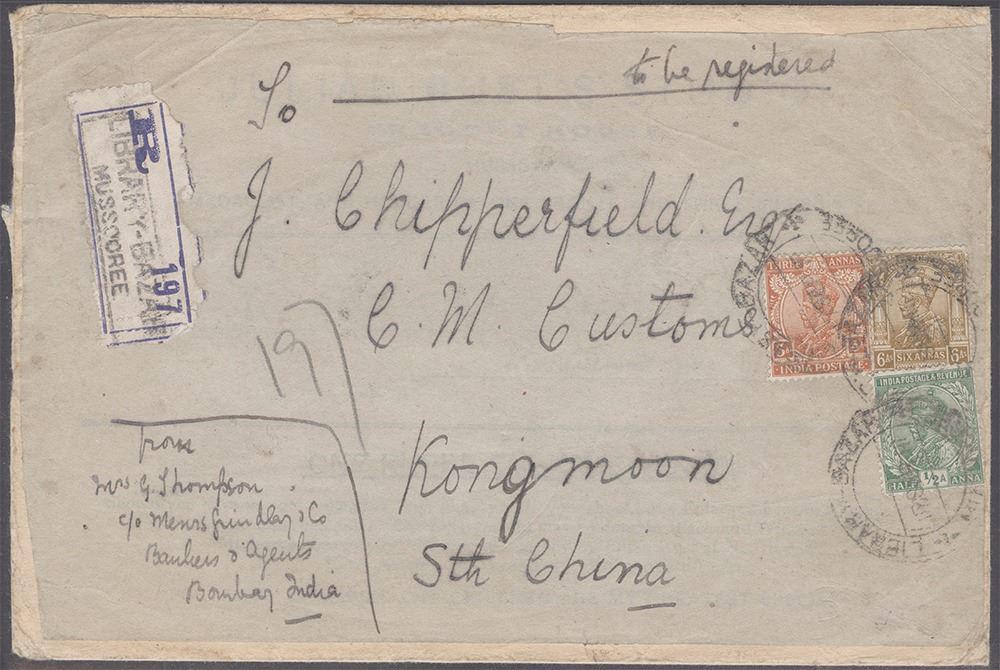 to be registered
To
J. Chipperfield Esq
C. M. Customs
Kongmoon
Sth China
R
LIBRARY-BAZAR
MUSSOOREE
197
197
from
Mrs G. Thompson
c/o Messrs Grindlay & Co
Bankers & Agents
Bombay India
THREE ANNAS
3As
INDIA POSTAGE
6As SIX ANNAS 6As
INDIA POSTAGE & REVENUE
HALF 1/2A ANNA
BAZAR
LIBRARY BAZAR